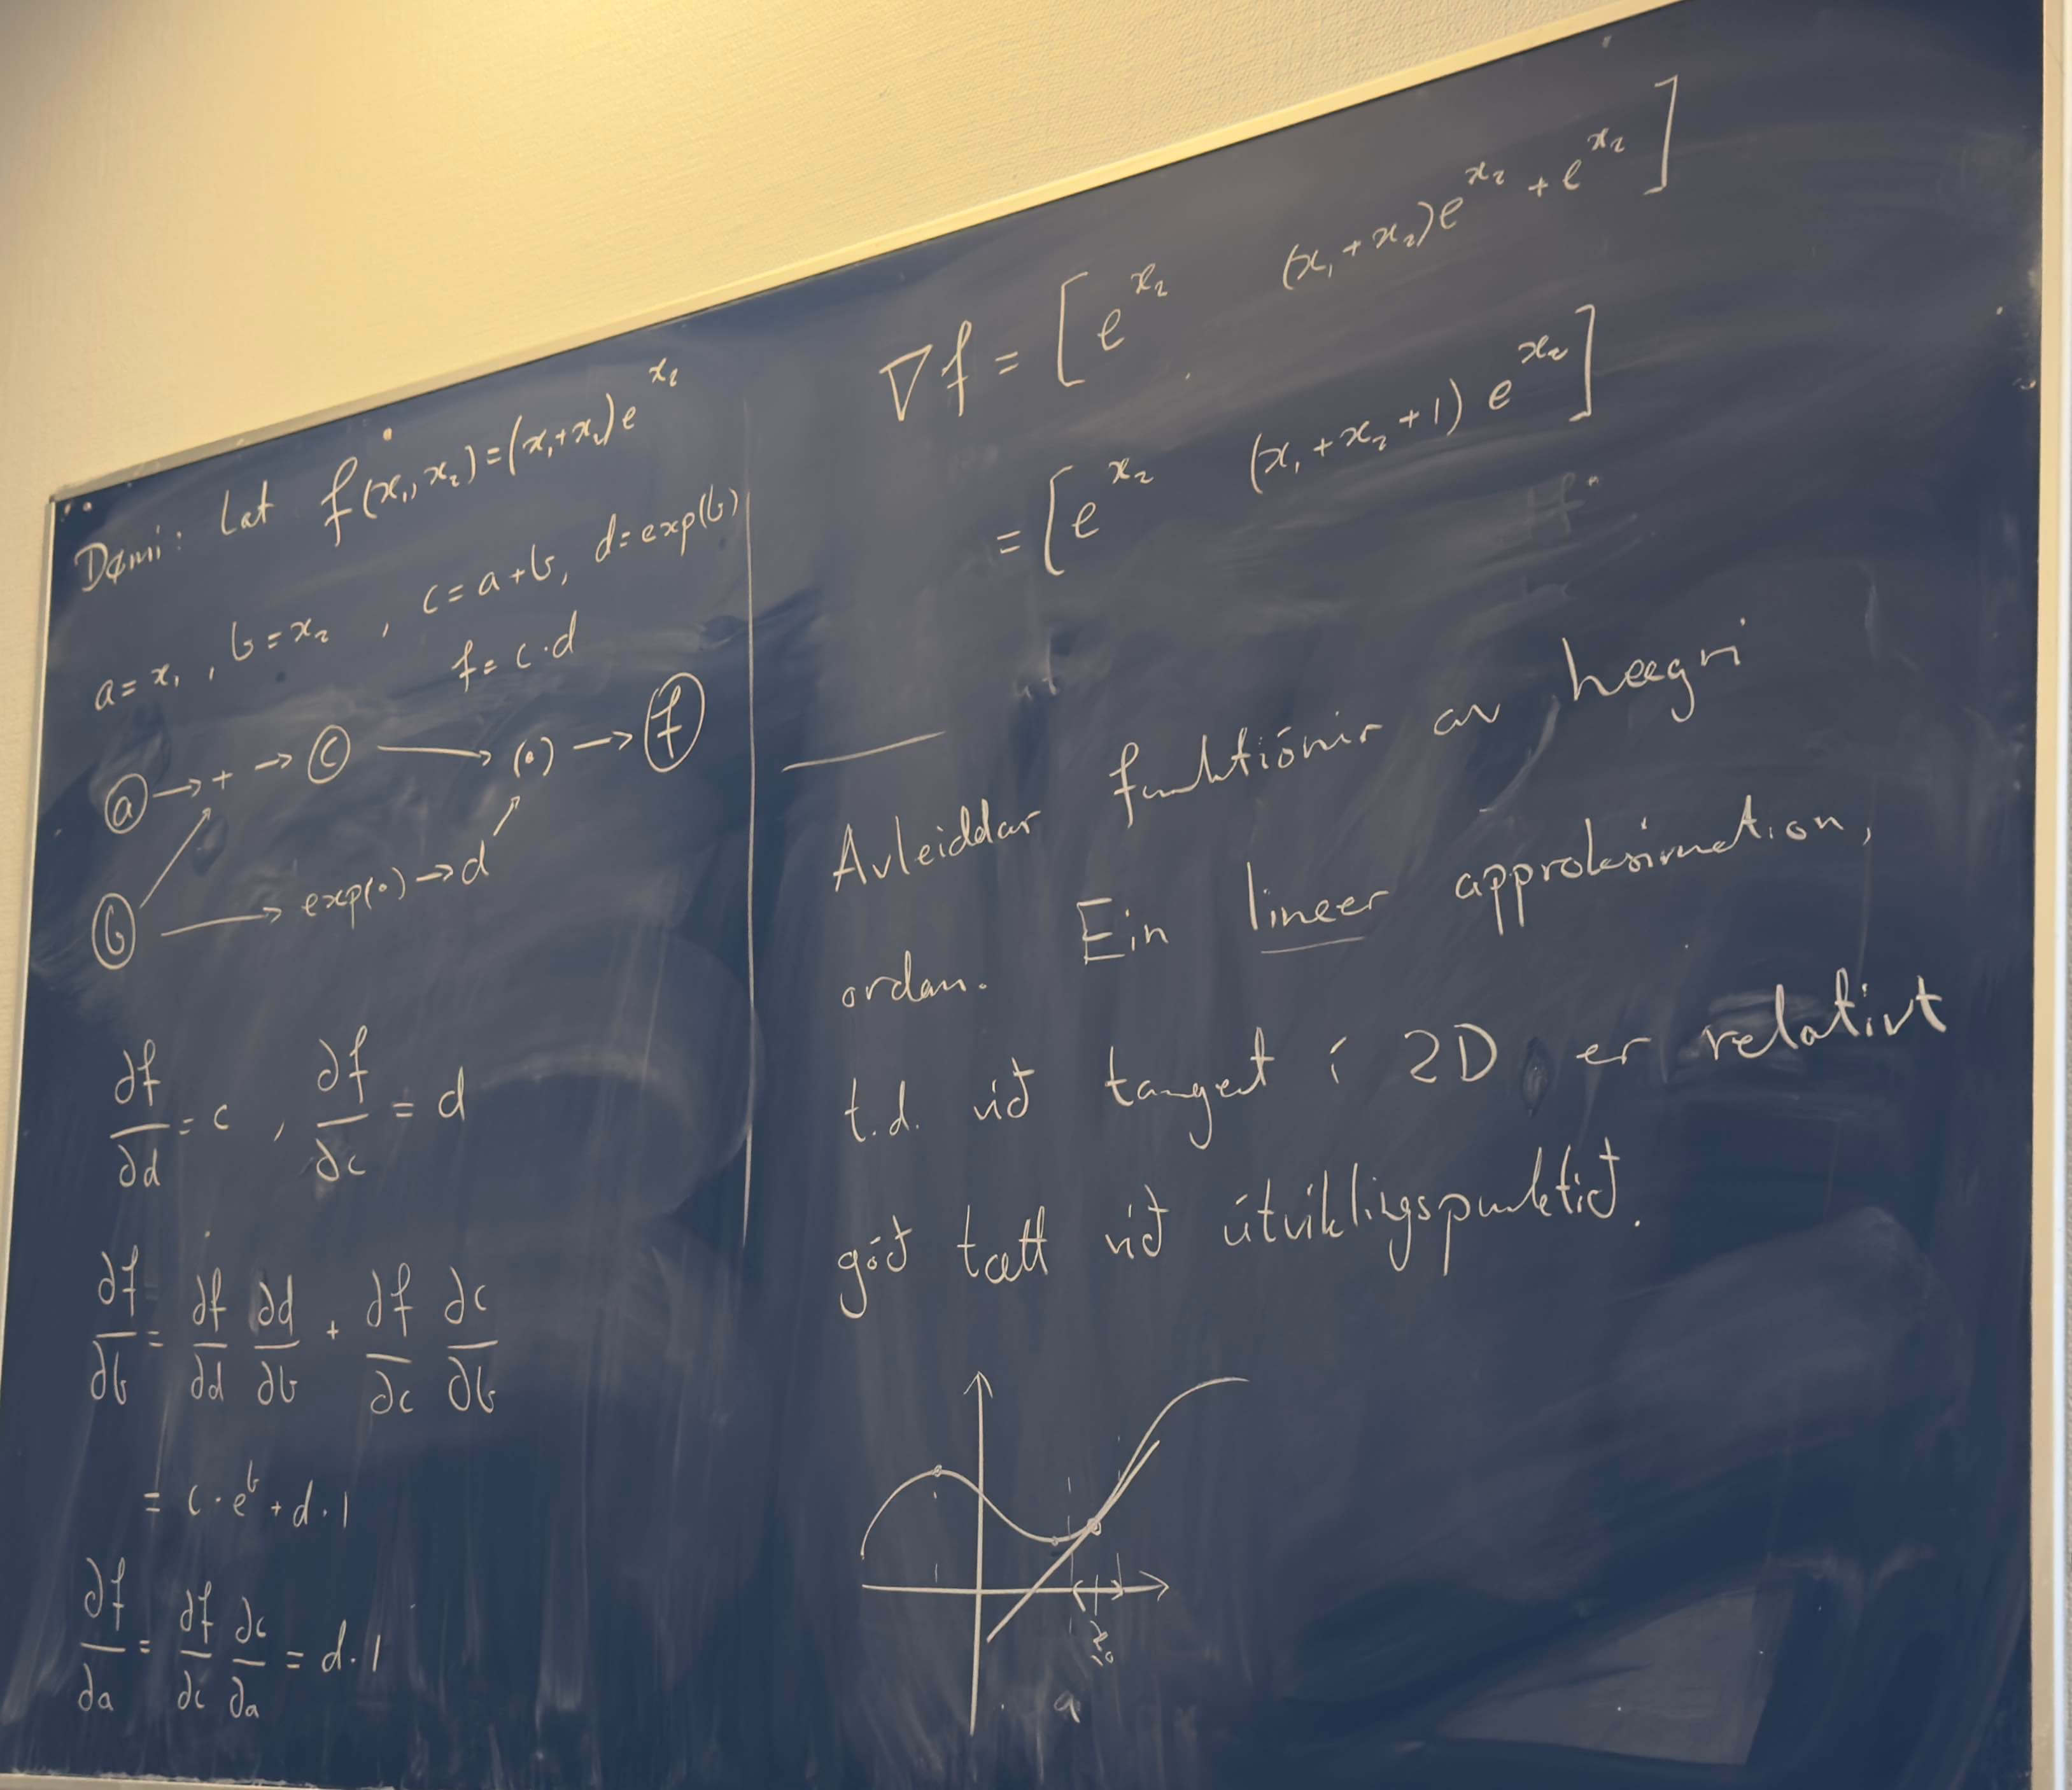 Dømi: Lat f(x₁, x₂) = (x₁+x₂)e^{x₂}
a = x₁ , b = x₂ , c = a+b, d = exp(b)
f = c·d
a → + → c → (•) → f
b → exp(•) → d
∂f/∂d = c , ∂f/∂c = d
∂f/∂b = ∂f/∂d ∂d/∂b + ∂f/∂c ∂c/∂b
= c·e^b + d·1
∂f/∂a = ∂f/∂c ∂c/∂a = d·1
∇f = [e^{x₂} (x₁+x₂)e^{x₂} + e^{x₂}]
= [e^{x₂} (x₁+x₂+1) e^{x₂}]
Avleiddar funktiónir av hægri
ordan. Ein lineer approksimation,
t.d. við tangent í 2D er relativt
góð tætt við útviklingspunktið.
x₀